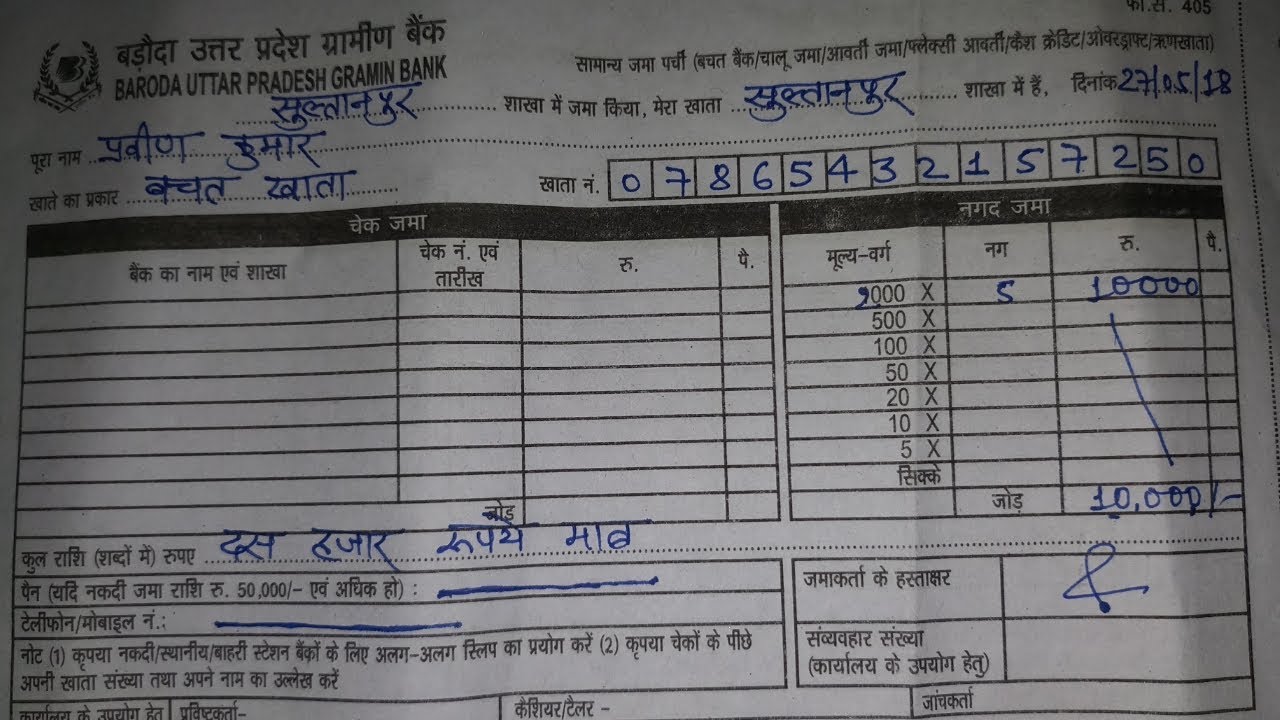 फा.सं. 405
बड़ौदा उत्तर प्रदेश ग्रामीण बैंक
BARODA UTTAR PRADESH GRAMIN BANK
सामान्य जमा पर्ची (बचत बैंक/चालू जमा/आवर्ती जमा/फ्लेक्सी आवर्ती/कैश क्रेडिट/ओवरड्राफ्ट/ऋणखाता)
सुल्तानपुर शाखा में जमा किया, मेरा खाता सुल्तानपुर शाखा में हैं, दिनांक 27/05/18
पूरा नाम प्रवीण कुमार
खाते का प्रकार बचत खाता खाता नं. 0 7 8 6 5 4 3 2 1 5 7 2 5 0
चेक जमा नगद जमा
बैंक का नाम एवं शाखा चेक नं. एवं तारीख रु. पै. मूल्य-वर्ग नग रु. पै.
2000 X 5 10000
500 X
100 X
50 X
20 X
10 X
5 X
सिक्के
जोड़ जोड़ 10,000/-
कुल राशि (शब्दों में) रुपए दस हजार रूपये मात्र
पैन (यदि नकदी जमा राशि रु. 50,000/- एवं अधिक हो) : जमाकर्ता के हस्ताक्षर
टेलीफोन/मोबाइल नं.:
नोट (1) कृपया नकदी/स्थानीय/बाहरी स्टेशन बैंकों के लिए अलग-अलग स्लिप का प्रयोग करें (2) कृपया चेकों के पीछे
अपनी खाता संख्या तथा अपने नाम का उल्लेख करें
संव्यवहार संख्या
(कार्यालय के उपयोग हेतु)
कार्यालय के उपयोग हेतु प्रविष्टकर्ता- कैशियर/टैलर - जांचकर्ता